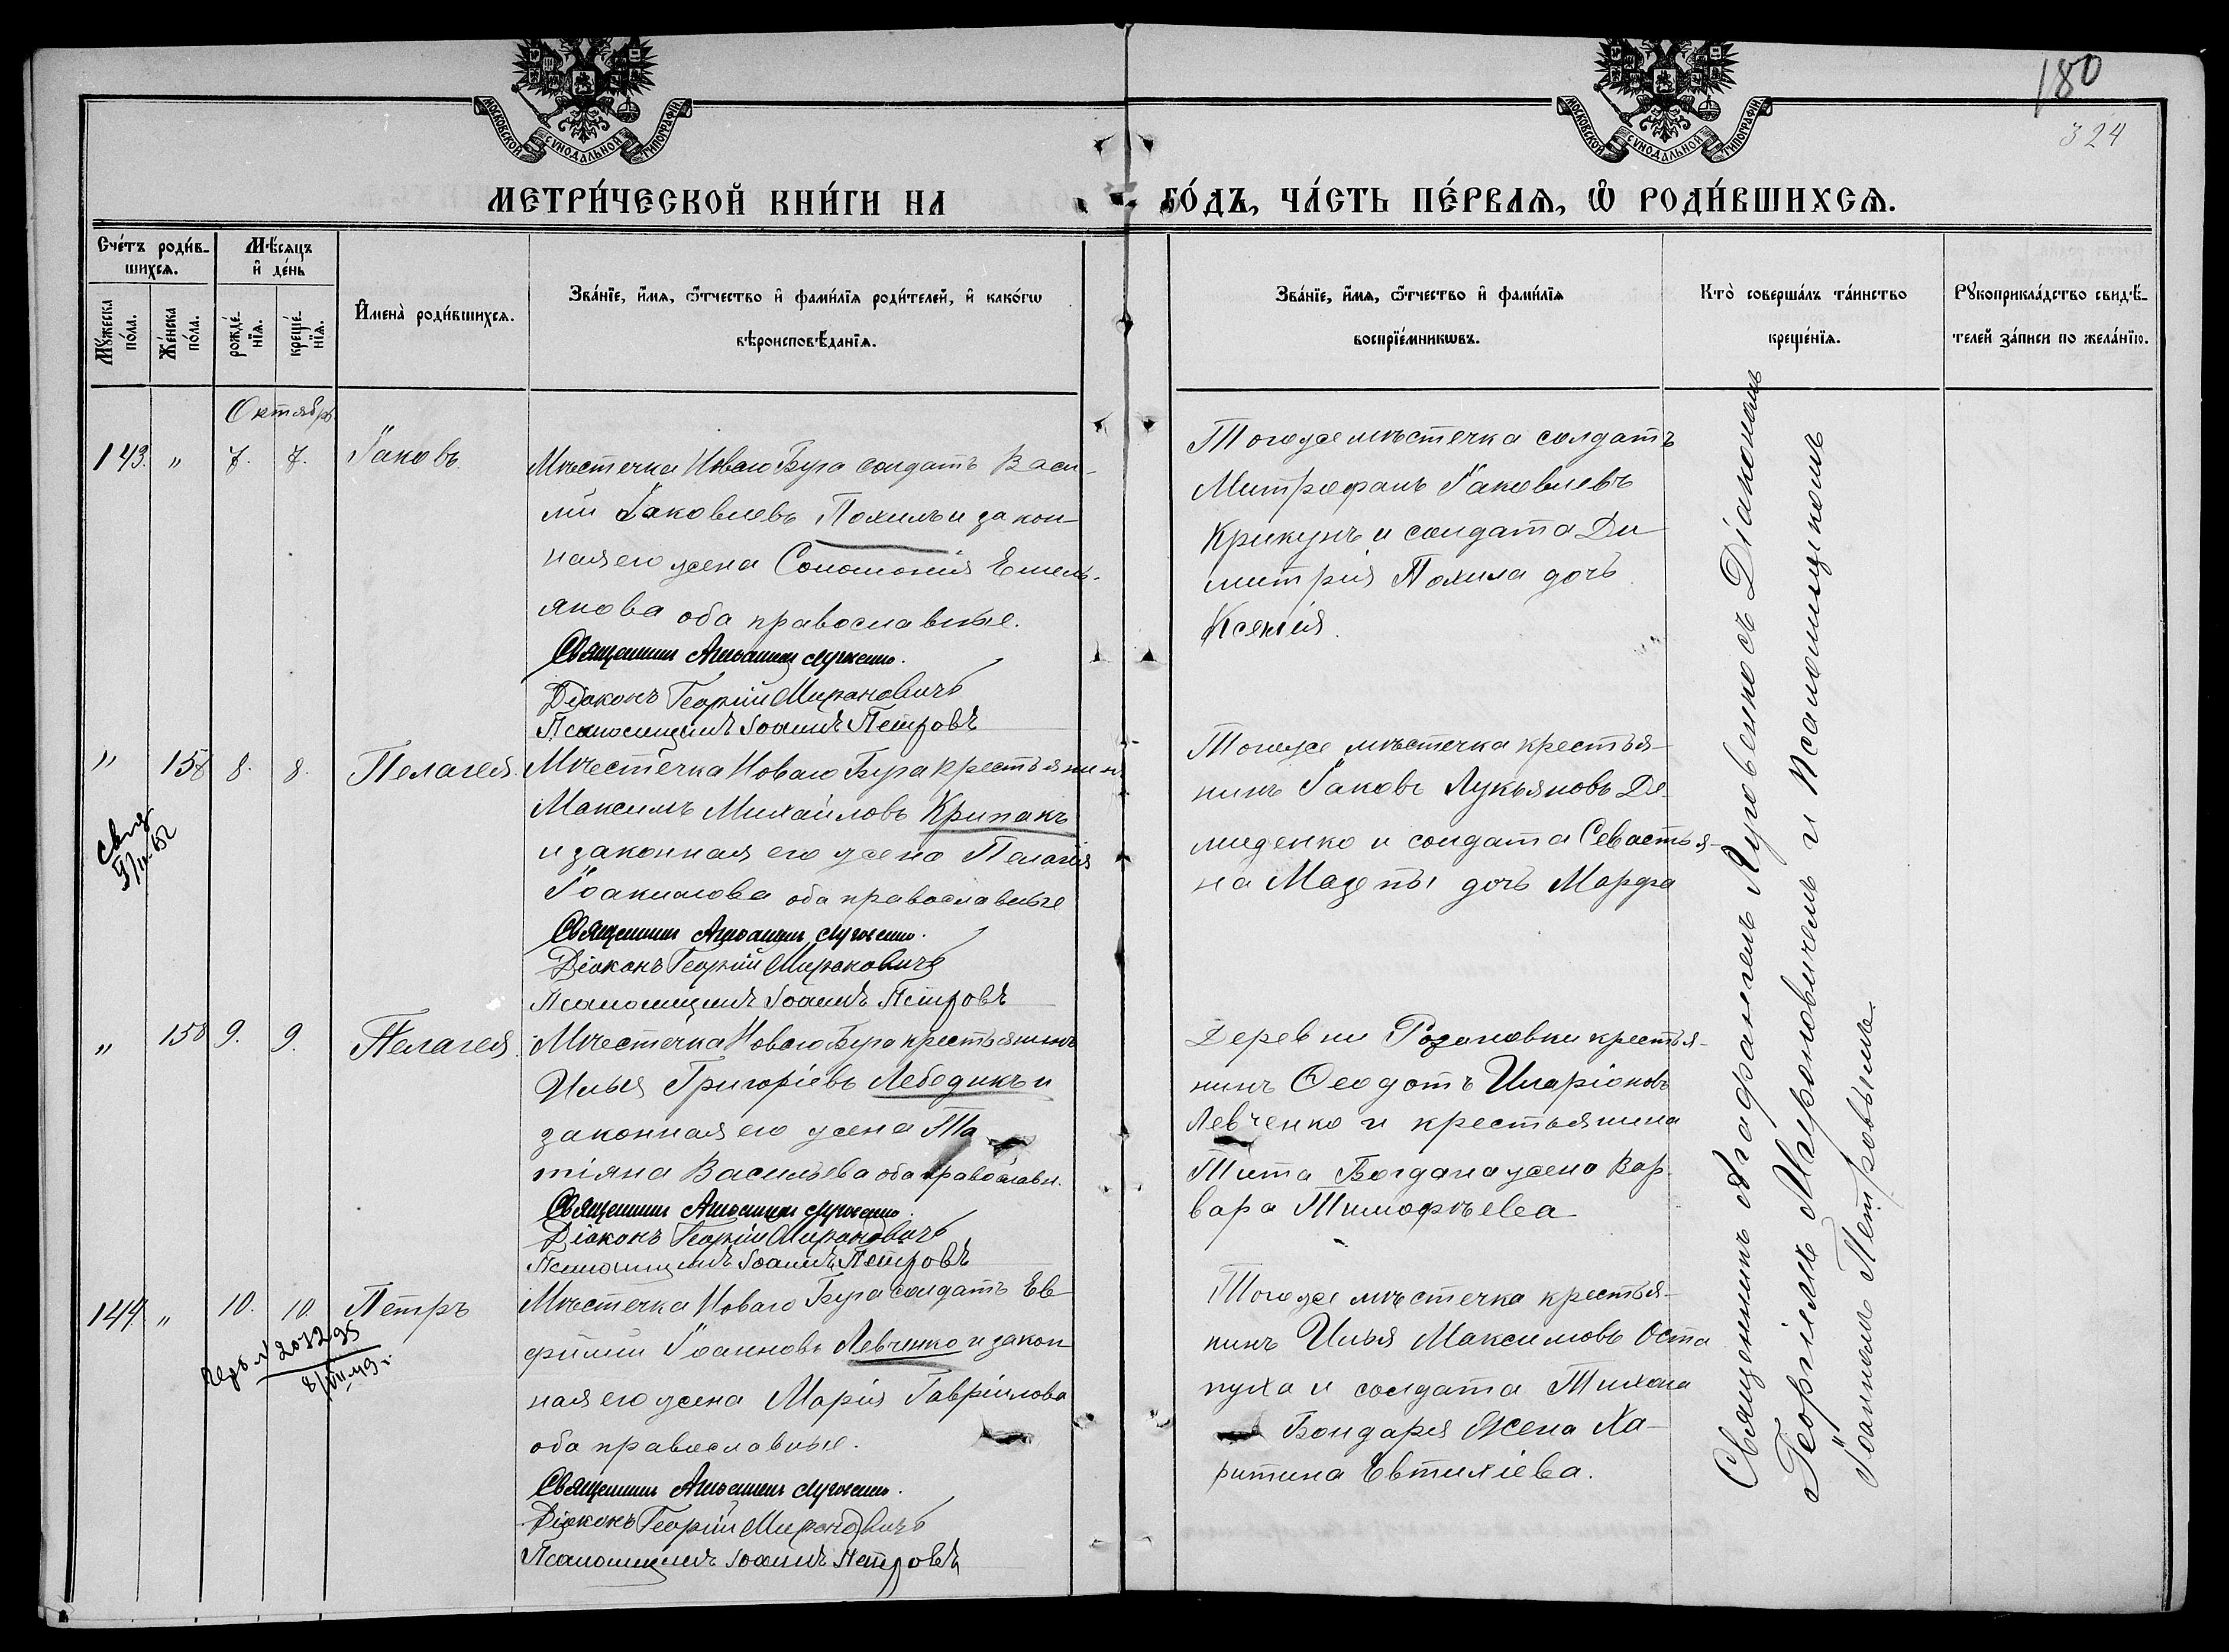 180
324
МОСКОВСКОЙ СѴНОДАЛЬНОЙ ТИПОГРАФІИ
МОСКОВСКОЙ СѴНОДАЛЬНОЙ ТИПОГРАФІИ
МЕТРИ́ЧЕСКОЙ КНИ́ГИ НА
ГО́ДЪ, ЧА́СТЬ ПЕ́РВАѦ, Ѽ РОДИ́ВШИХСѦ.
Сче́тъ роди́в-
шихсѧ.
Мꙋ́жеска по́ла.
Же́нска по́ла.
Мѣ́сѧцъ
и҆ де́нь
рожде́-
нїѧ.
креще́-
нїѧ.
И҆мена̀ роди́вшихсѧ.
Зва́нїе, и҆́мѧ, ѻ҆́тчество и҆ фами́лїѧ роди́телей, и҆ како́гѡ
вѣроисповѣ́данїѧ.
Зва́нїе, и҆́мѧ, ѻ҆́тчество и҆ фами́лїѧ
воспрїе́мникѡвъ.
Кто̀ соверша́лъ та́инство
креще́нїѧ.
Рꙋкоприкла́дство свидѣ́-
телей за́писи по жела́нїю.
Октябрь
143. " 7. 7. Іаковъ
Мѣстечка Новаго Буга солдатъ Васи-
лій Іаковлевъ Похилъ и закон-
ная его жена Соломонія Емель-
янова оба православные.
Священникъ Агаѳангелъ Луговенко.
Діаконъ Георгій Мироновичъ
Псаломщикъ Іоаннъ Петровъ
Тогоже мѣстечка солдатъ
Митрофанъ Іаковлевъ
Крикунъ и солдата Ди-
митрія Похила дочь
Ксенія.
" 158 8. 8. Пелагея.
Мѣстечка Новаго Буга крестьянинъ
Максимъ Михайловъ Крипакъ
и законная его жена Пелагія
Іоакимова оба православные
Священникъ Агаѳангелъ Луговенко.
Діаконъ Георгій Мироновичъ
Псаломщикъ Іоаннъ Петровъ
Тогоже мѣстечка крестья-
нинъ Іаковъ Лукьяновъ Де-
миденко и солдата Севастья-
на Мазепы дочь Марфа
" 158 9. 9. Пелагея.
Мѣстечка Новаго Буга крестьянинъ
Илья Григоріевъ Лебедикъ и
законная его жена Та-
тіяна Васильева оба православн.
Священникъ Агаѳангелъ Луговенко.
Діаконъ Георгій Мироновичъ
Псаломщикъ Іоаннъ Петровъ
Деревни Розановки крестья-
нинъ Ѳеодотъ Иларіоновъ
Левченко и крестьянина
Тита Богдана жена Вар-
вара Тимофѣева
144 " 10. 10. Петръ
Мѣстечка Новаго Буга солдатъ Ев-
фимій Іоанновъ Левченко и закон-
ная его жена Марія Гавріилова
оба православные.
Священникъ Агаѳангелъ Луговенко.
Діаконъ Георгій Мироновичъ
Псаломщикъ Іоаннъ Петровъ
Тогоже мѣстечка крестья-
нинъ Илья Максимовъ Оста-
пуха и солдата Тихона
Бондаря Жена Ха-
ритина Евтихіева.
Священникъ Агафангелъ Луговенко съ Діакономъ
Георгіемъ Мироновичемъ и Псаломщикомъ
Іоанномъ Петровымъ.